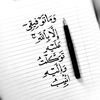 وَمَا تَوْفِيقِي
إِلَّا بِاللَّهِ
عَلَيْهِ
تَوَكَّلْتُ
وَإِلَيْهِ
أُنِيبُ